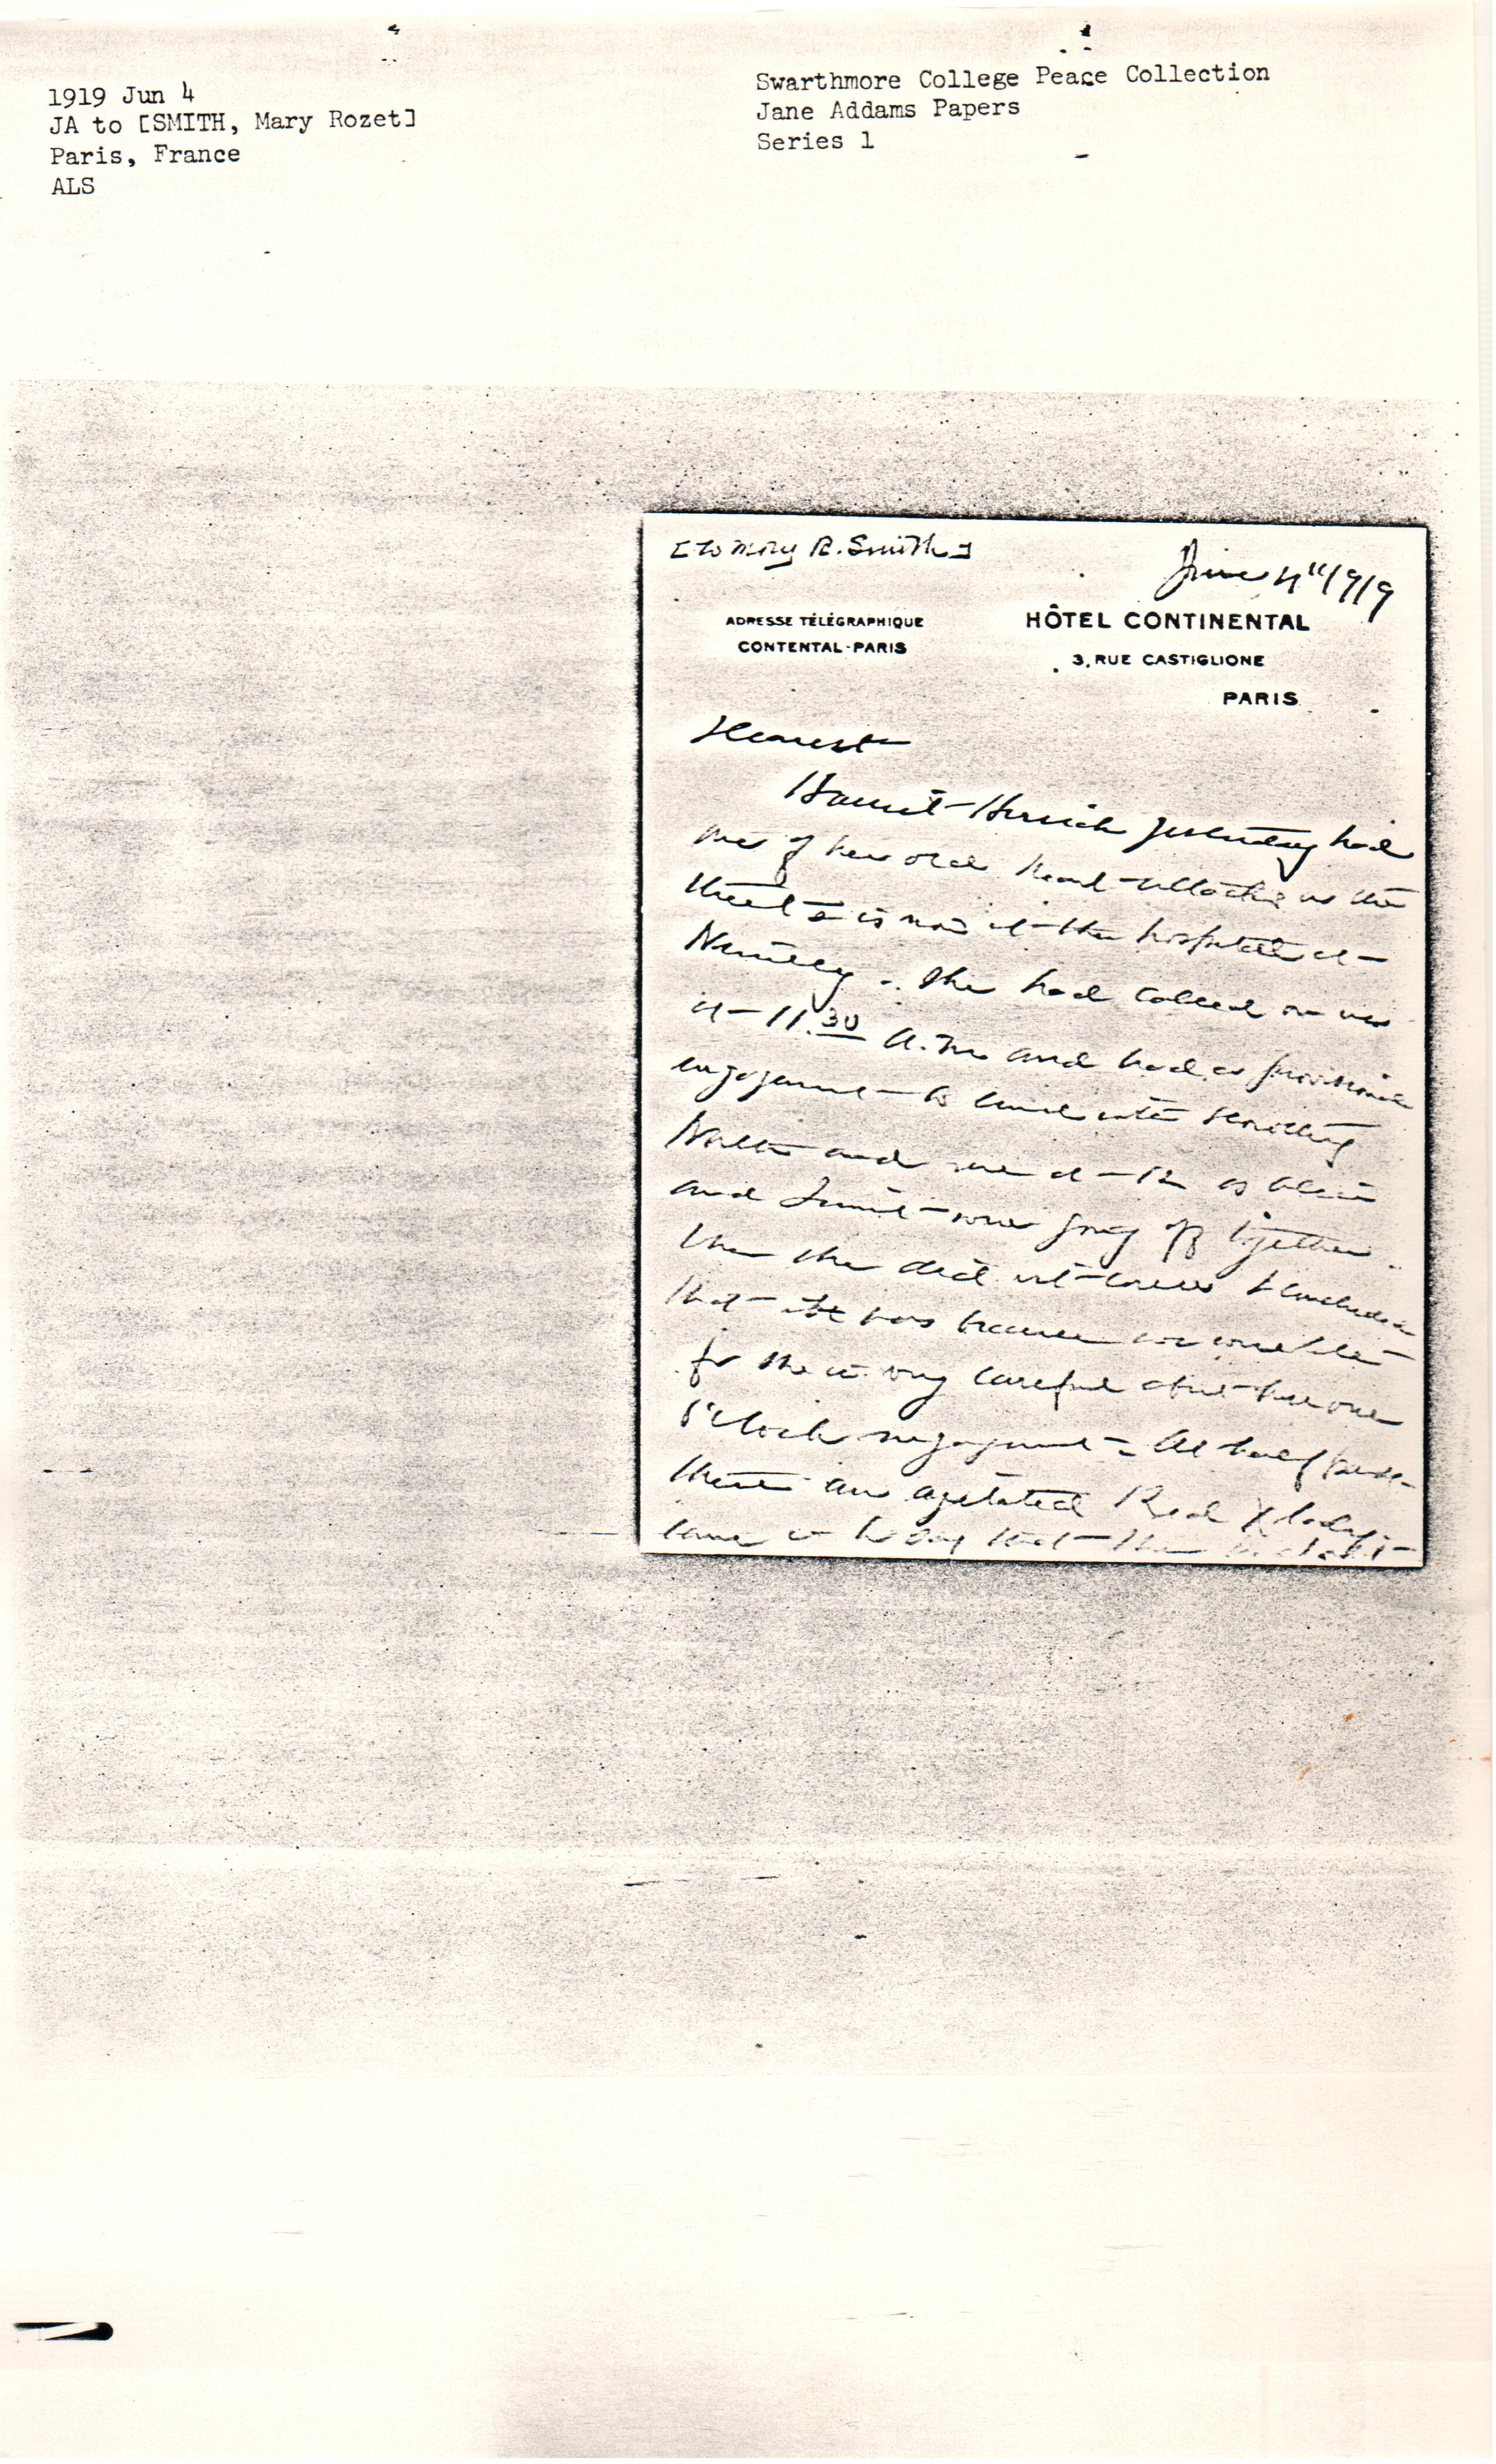 1919 Jun 4
JA to [SMITH, Mary Rozet]
Paris, France
ALS
Swarthmore College Peace Collection
Jane Addams Papers
Series 1
[to Mary R. Smith]
June 4" 1919
ADRESSE TÉLÉGRAPHIQUE
CONTENTAL-PARIS
HÔTEL CONTINENTAL
3, RUE CASTIGLIONE
PARIS
Dearest
yesterday had
one of her old heart attacks on the
street & is now at the hospital at
She had called on us
at 11.30 A.M. and had a provisional
engagement to lunch with
and me at 12 as Alice
and were going off together
When she did not come I concluded
that it was because
for she is very careful about her one
o'clock engagement - At half past
three an agitated Red X lady
came in to say that